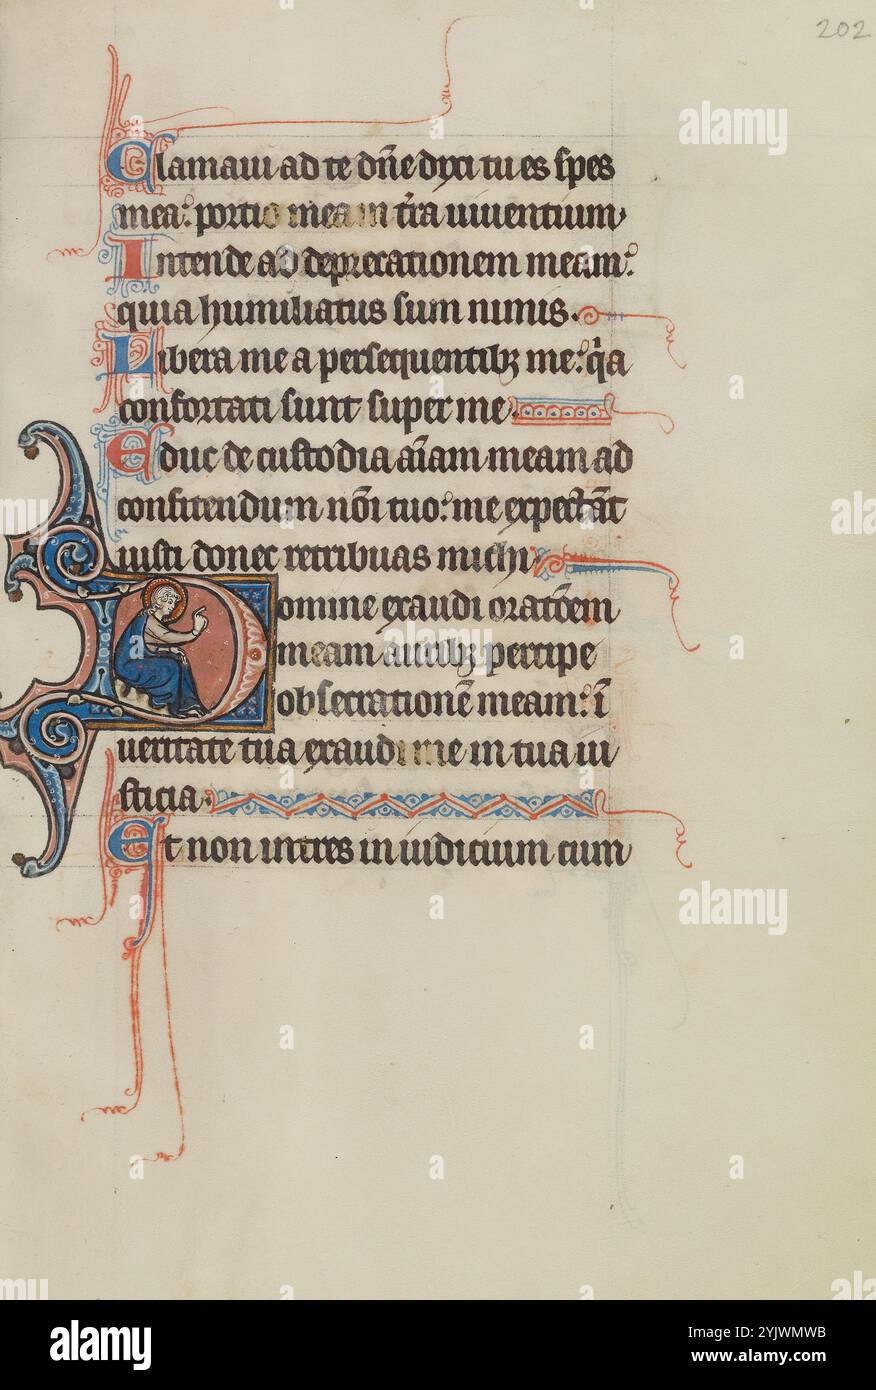 202
Clamaui ad te dn̄e dyxi tu es spes
mea: portio mea in t̄ra uiuentium
Intende ad deprecationem meam:
quia humiliatus sum nimis.
Libera me a persequentibꝫ me: q̄a
confortati sunt super me.
Educ de custodia ai̅am meam ad
confitendum nōi tuo: me expectāt
iusti donec retribuas michi
Domine exaudi oratōem
meam auribꝫ percipe
obsecrationē meam: ī
ueritate tua exaudi me in tua iu
sticia.
Et non intres in iudicium cum
alamy
alamy
Image ID: 2YJWMWB
www.alamy.com